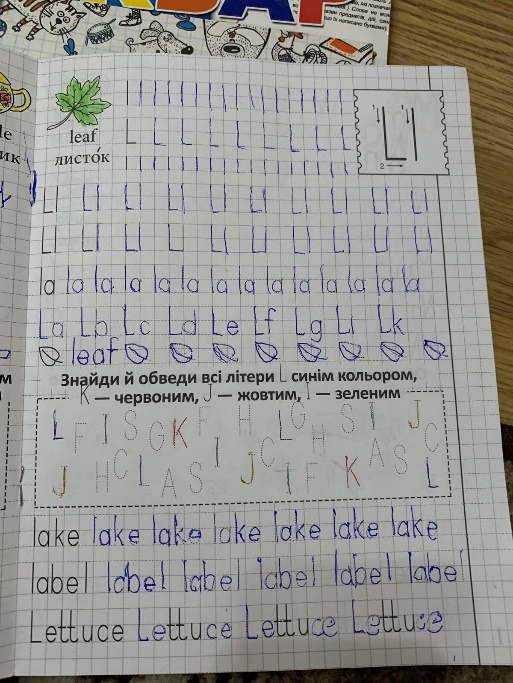 БУКВАР
leaf
листо́к
le
ик
1 1
2
L L L L L L L L L
Ll Ll Ll Ll Ll Ll Ll Ll Ll Ll
Ll Ll Ll Ll Ll Ll Ll Ll Ll Ll
la la la la la la la la la la la la la
La Lb Lc Ld Le Lf Lg Li Lk
leaf
Знайди й обведи всі літери L синім кольором,
K — червоним, J — жовтим, I — зеленим
L F I S G K F H L G S I J
J H C L A S I J C I H F K A S C L
lake lake lake lake lake lake lake
label label label label label label
Lettuce Lettuce Lettuce Lettuce